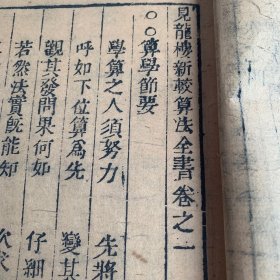 見龍樓新較算法全書卷之一
○○算學節要
學算之人須努力 先將
呼如下位算爲先 變其
觀其發問果何如 仔細
若然法實既能知 次求